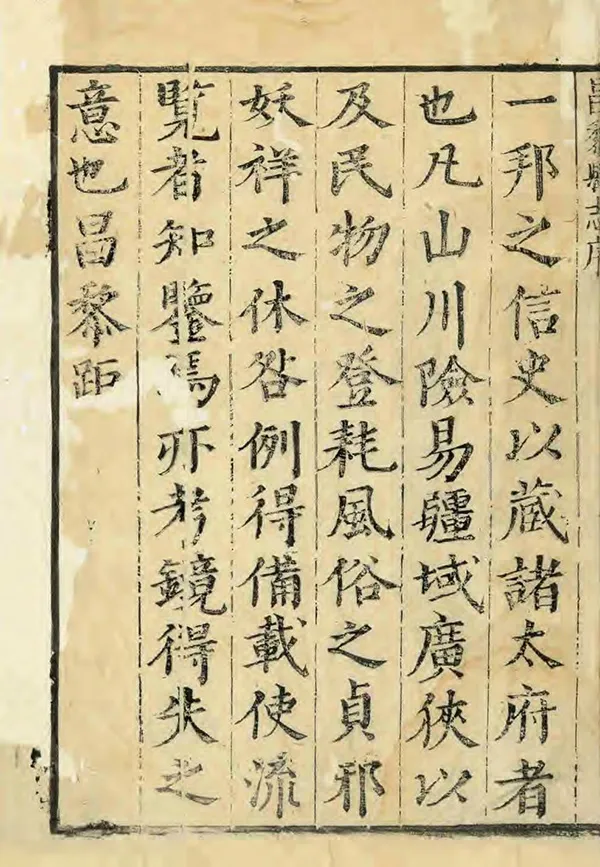 昌黎縣志序
一邦之信史以藏諸太府者
也凡山川險易疆域廣狹以
及民物之登耗風俗之貞邪
妖祥之休咎例得備載使流
覽者知鑒焉亦考鏡得失之
意也昌黎距